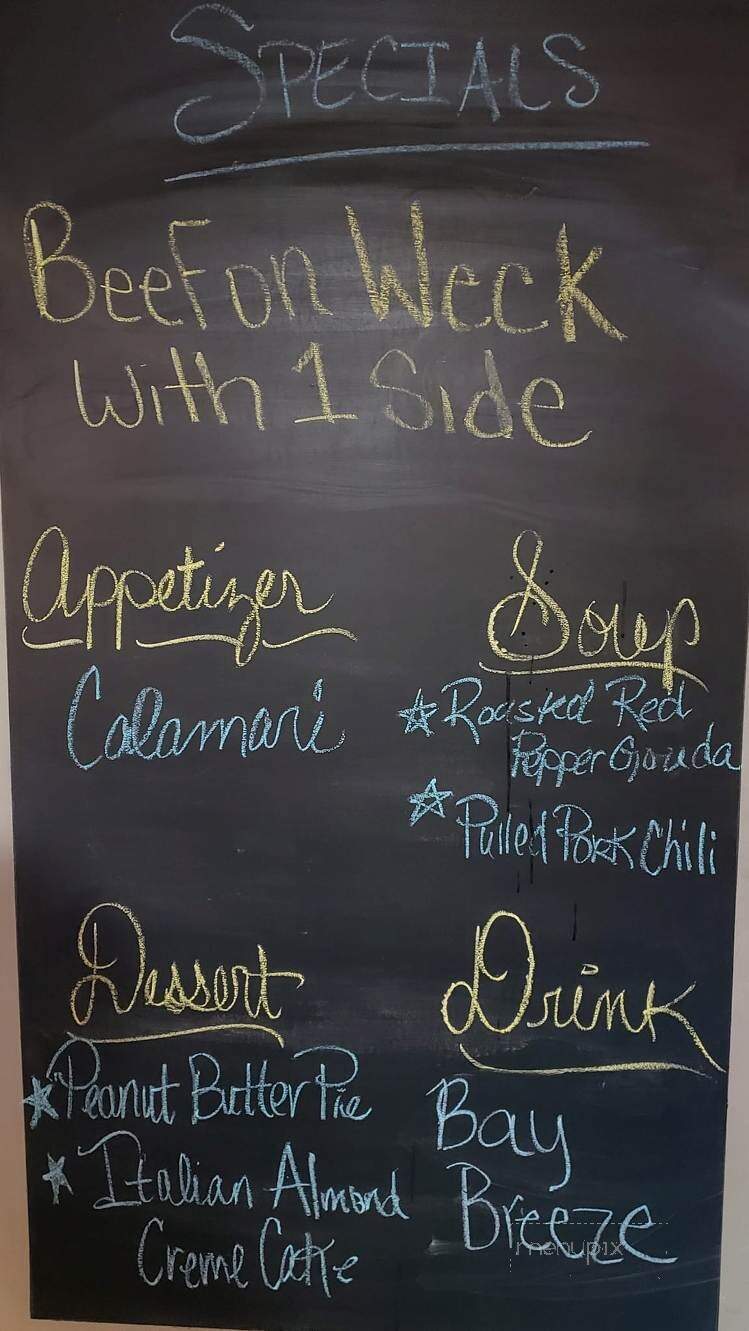 SPECIALS
BeeF on Weck
With 1 Side
Appetizer
Calamari
Soup
☆ Roasted Red
Pepper Gouda
☆ Pulled Pork Chili
Dessert
☆ Peanut Butter Pie
☆ Italian Almond
Creme Cake
Drink
Bay
Breeze
menupix